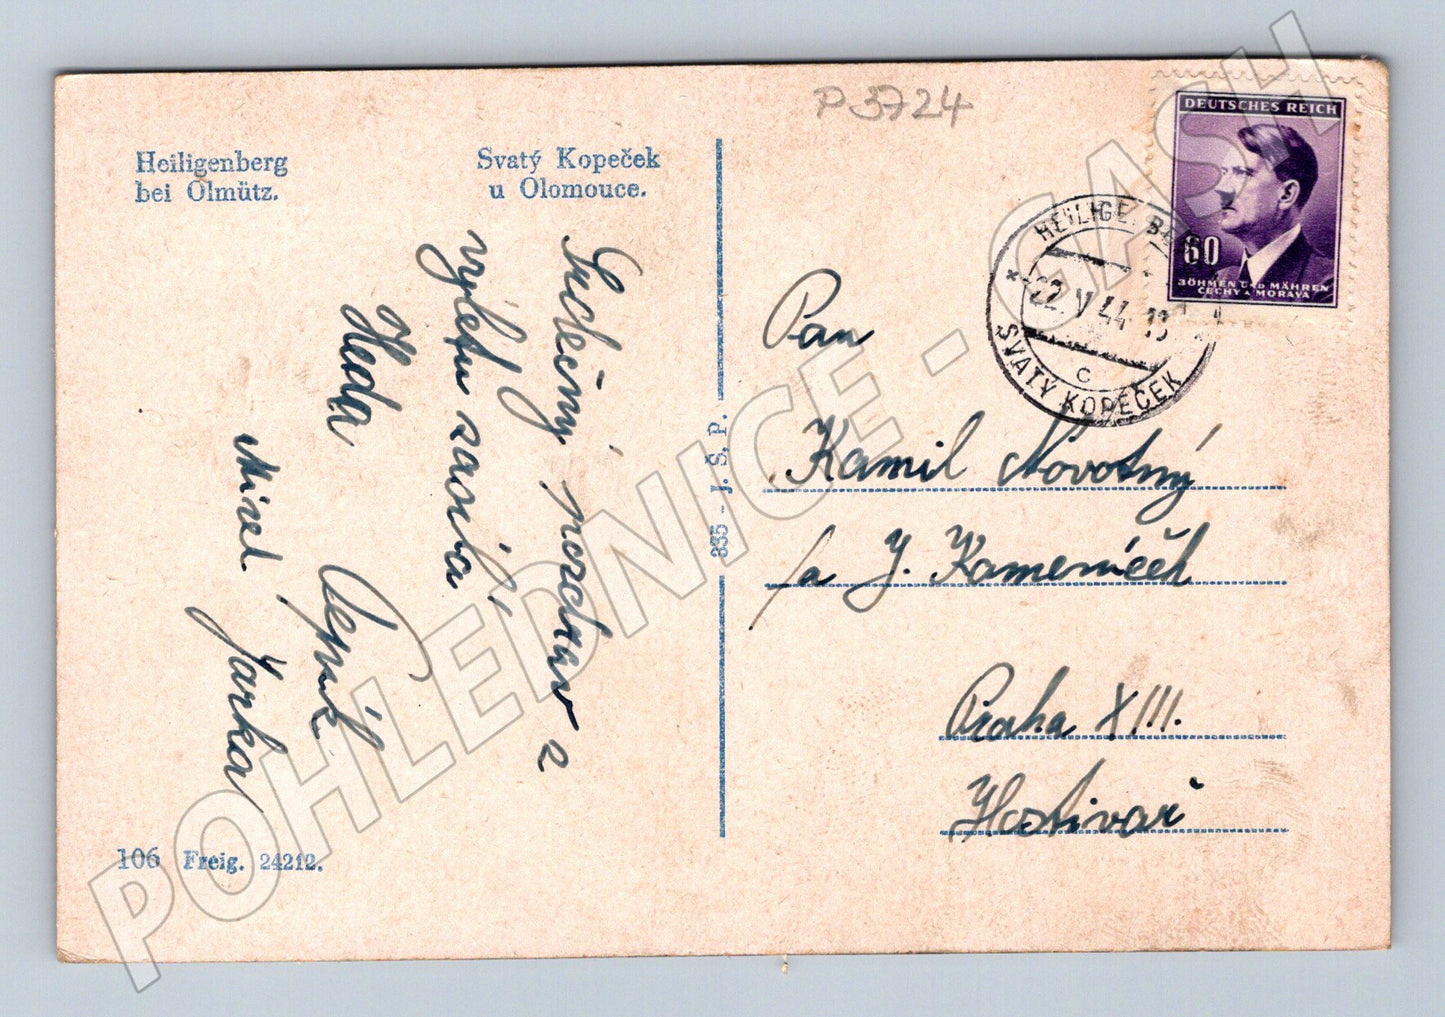 P 3724
Heiligenberg
bei Olmütz.
Svatý Kopeček
u Olomouce.
Srdečný pozdrav z
výletu zasílá
Heda
Pepík
Mirel
Jarka
106 Freig. 24212.
355 - J. Š. P.
DEUTSCHES REICH
60
BÖHMEN UND MÄHREN
ČECHY A MORAVA
HEILIGENBERG
22. V 44 - 13
c
SVATÝ KOPEČEK
Pan
Kamil Novotný
fa J. Kameníček
Praha XIII.
Hostivař
POHLEDNICE - GASH